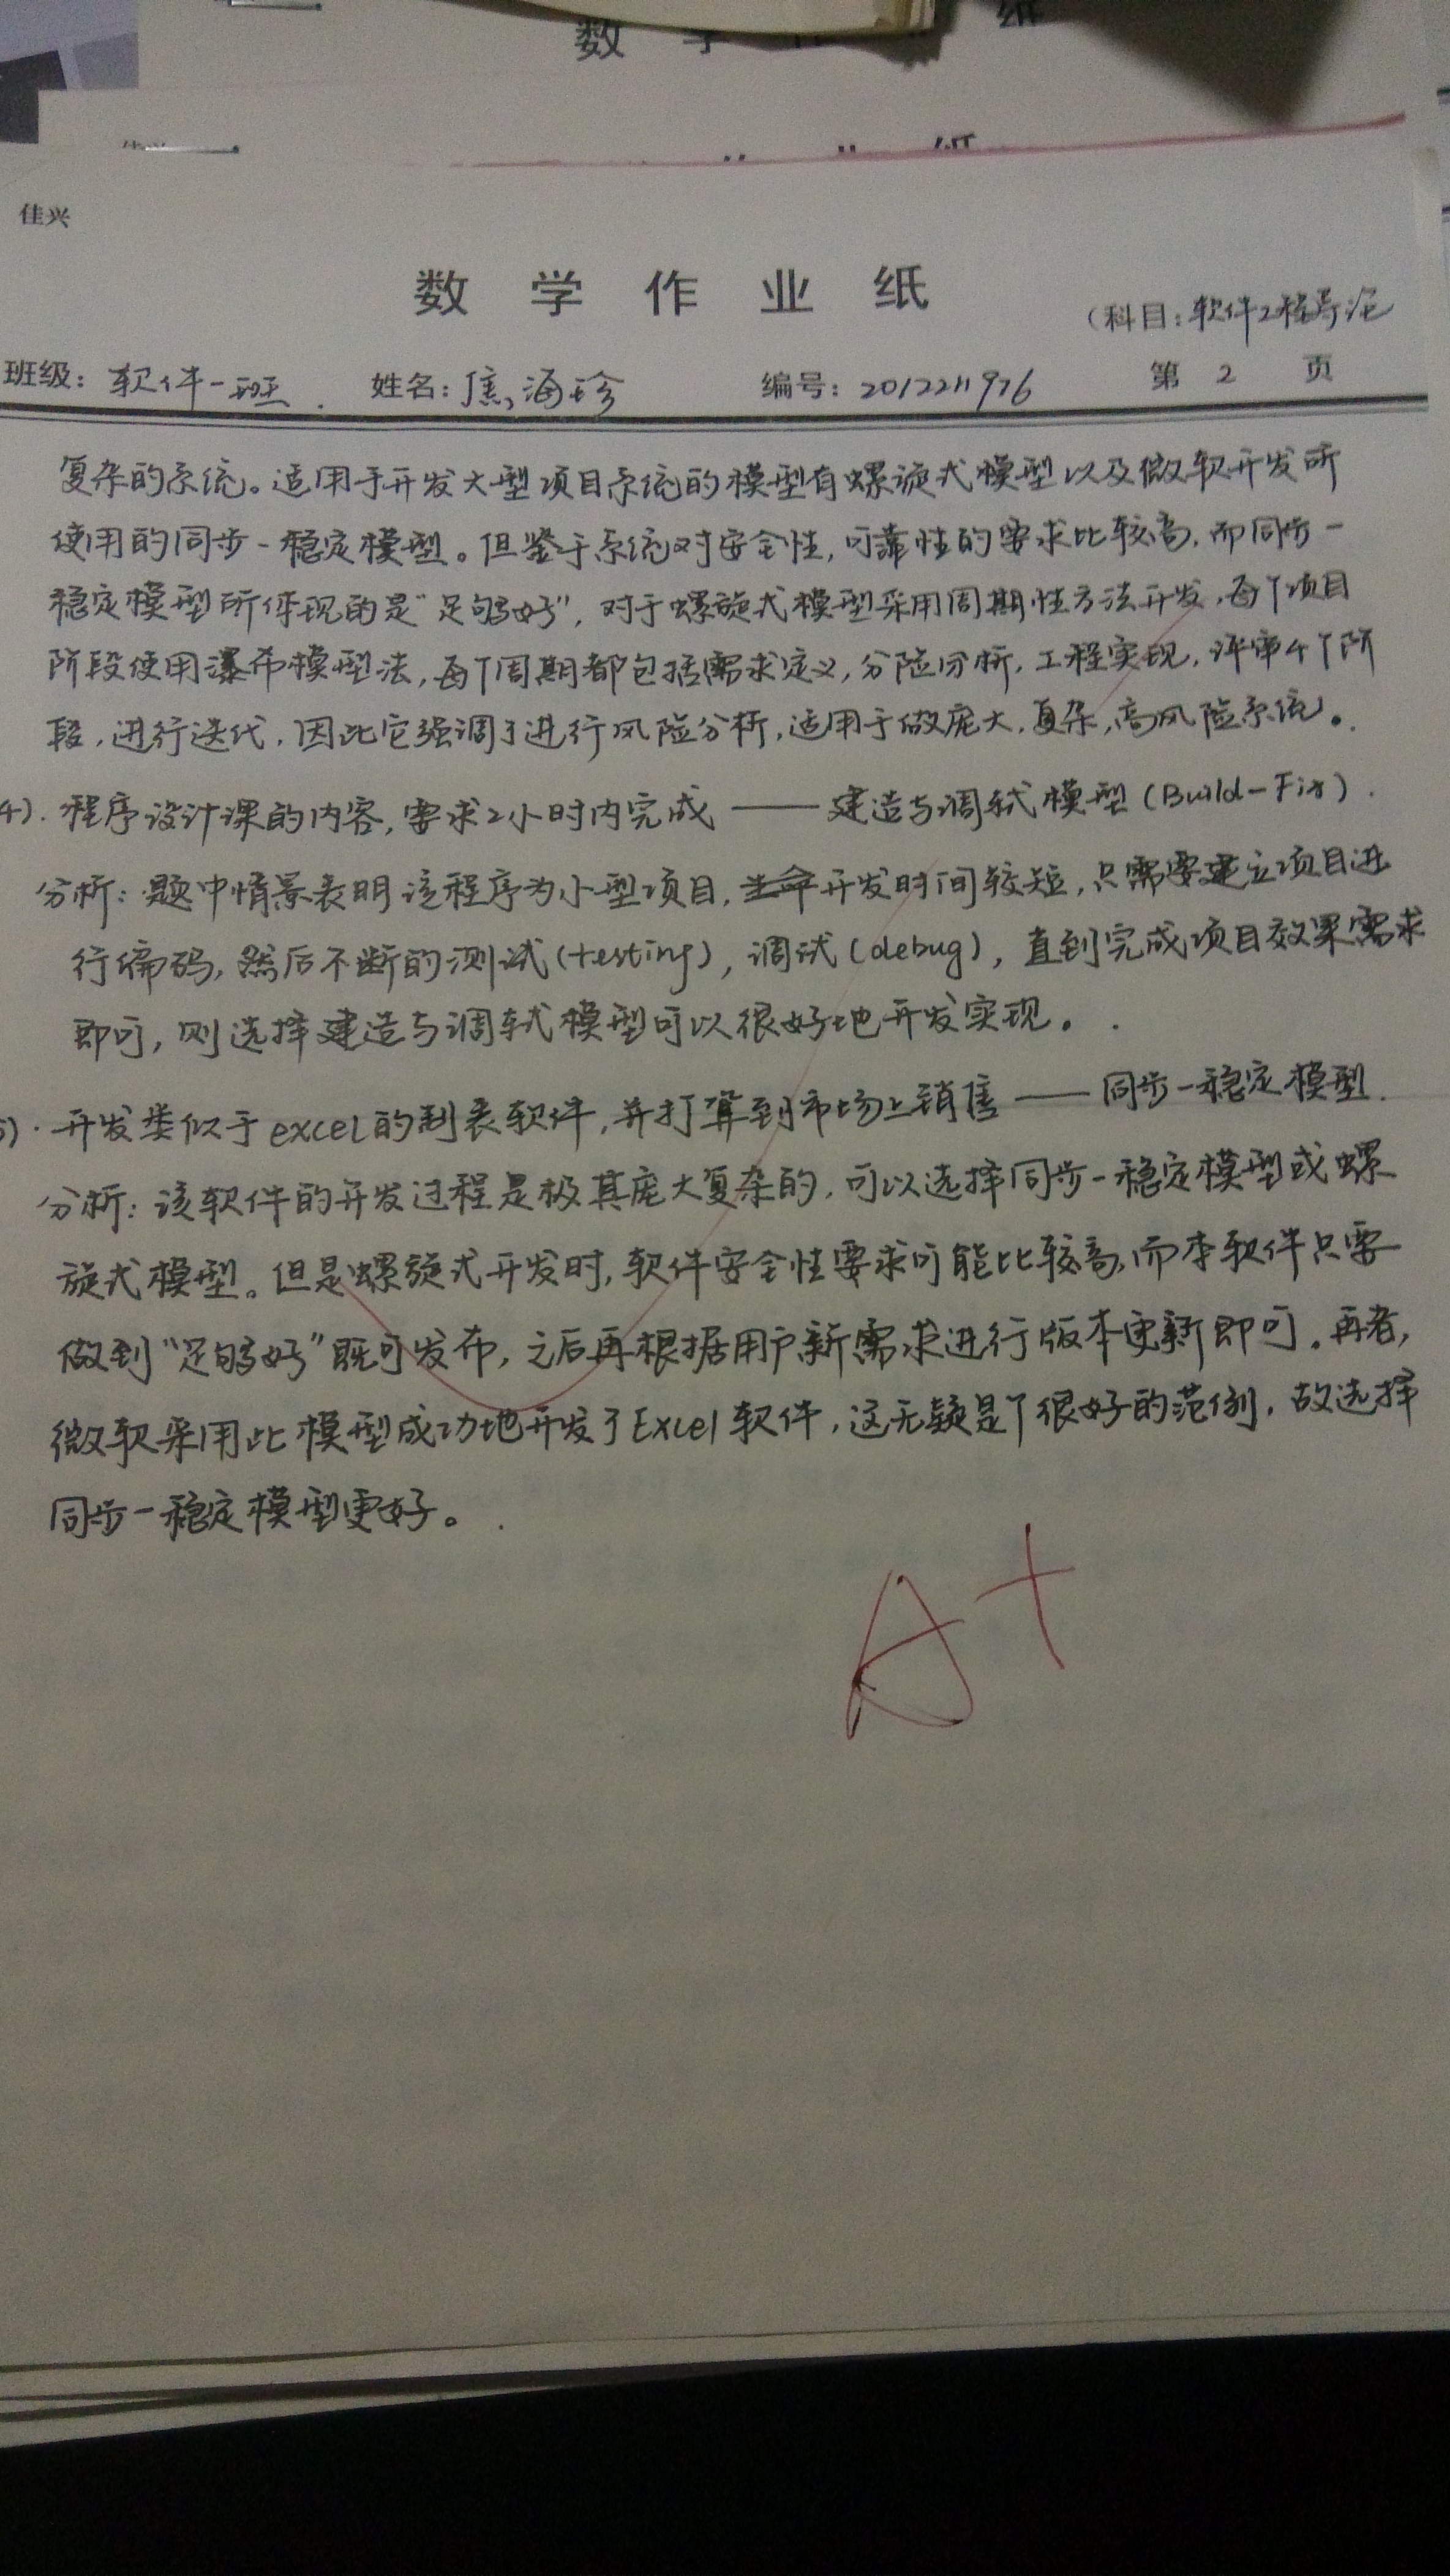 数
佳兴
数 学 作 业 纸
(科目:软件工程导论
班级: 软件一班 姓名: 焦海珍 编号: 2012211976 第 2 页
复杂的系统。适用于开发大型项目系统的模型有螺旋式模型以及微软开发所
使用的同步-稳定模型。但鉴于系统对安全性,可靠性的要求比较高,而同步-
稳定模型所体现的是"足够好",对于螺旋式模型采用周期性方法开发,每个项目
阶段使用瀑布模型法,每个周期都包括需求定义,分险分析,工程实现,评审4个阶
段,进行迭代,因此它强调了进行风险分析,适用于做庞大,复杂,高风险系统。
4). 程序设计课的内容,要求2小时内完成 —— 建造与调试模型(Build-Fix).
分析: 题中情景表明该程序为小型项目,开发时间较短,只需要建立项目进
行编码,然后不断的测试(testing),调试(debug),直到完成项目效果需求
即可,则选择建造与调试模型可以很好地开发实现。
5). 开发类似于excel的制表软件,并打算到市场上销售 —— 同步-稳定模型.
分析: 该软件的开发过程是极其庞大复杂的,可以选择同步-稳定模型或螺
旋式模型。但是螺旋式开发时,软件安全性要求可能比较高,而本软件只需
做到"足够好"既可发布,之后再根据用户新需求进行版本更新即可。再者,
微软采用此模型成功地开发了Excel软件,这无疑是个很好的范例,故选择
同步-稳定模型更好。
A+